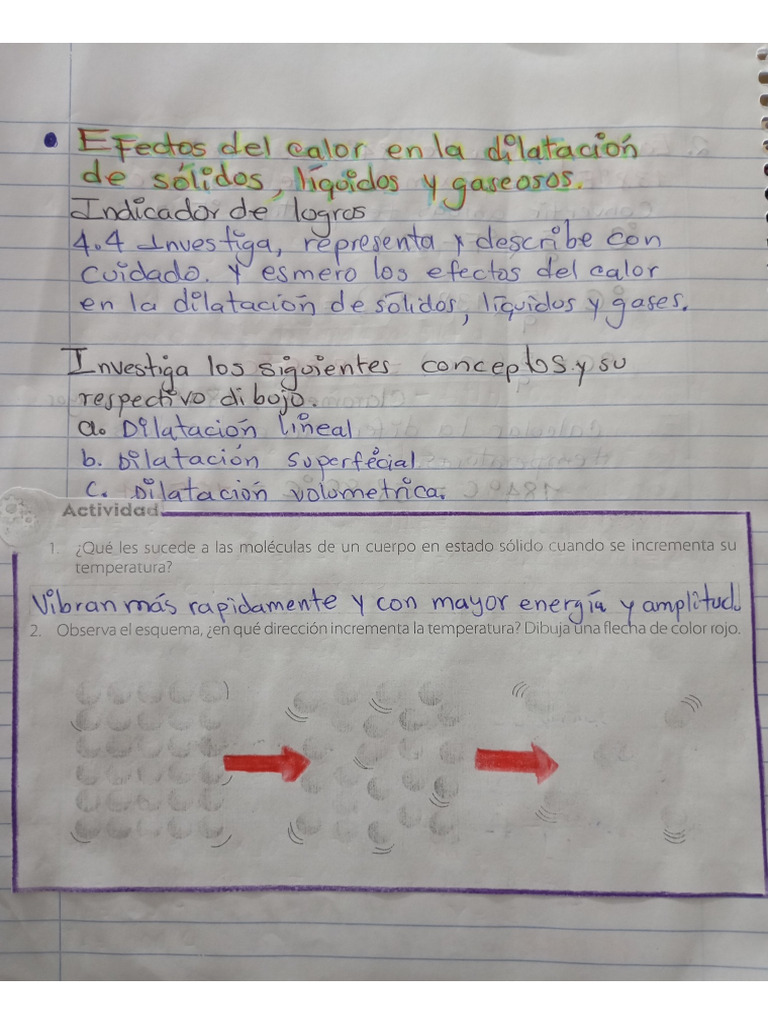 Efectos del calor en la dilatación
de sólidos, líquidos y gaseosos.
Indicador de logros
4.4 Investiga, representa y describe con
cuidado. Y esmero los efectos del calor
en la dilatación de solidos, líquidos y gases.
Investiga los siguientes conceptos y su
respectivo dibujo.
a. Dilatación lineal
b. Dilatación superfecial
c. Dilatación volometrica.
Actividad
1. ¿Qué les sucede a las moléculas de un cuerpo en estado sólido cuando se incrementa su
temperatura?
Vibran más rapidamente y con mayor energía y amplitud.
2. Observa el esquema, ¿en qué dirección incrementa la temperatura? Dibuja una flecha de color rojo.